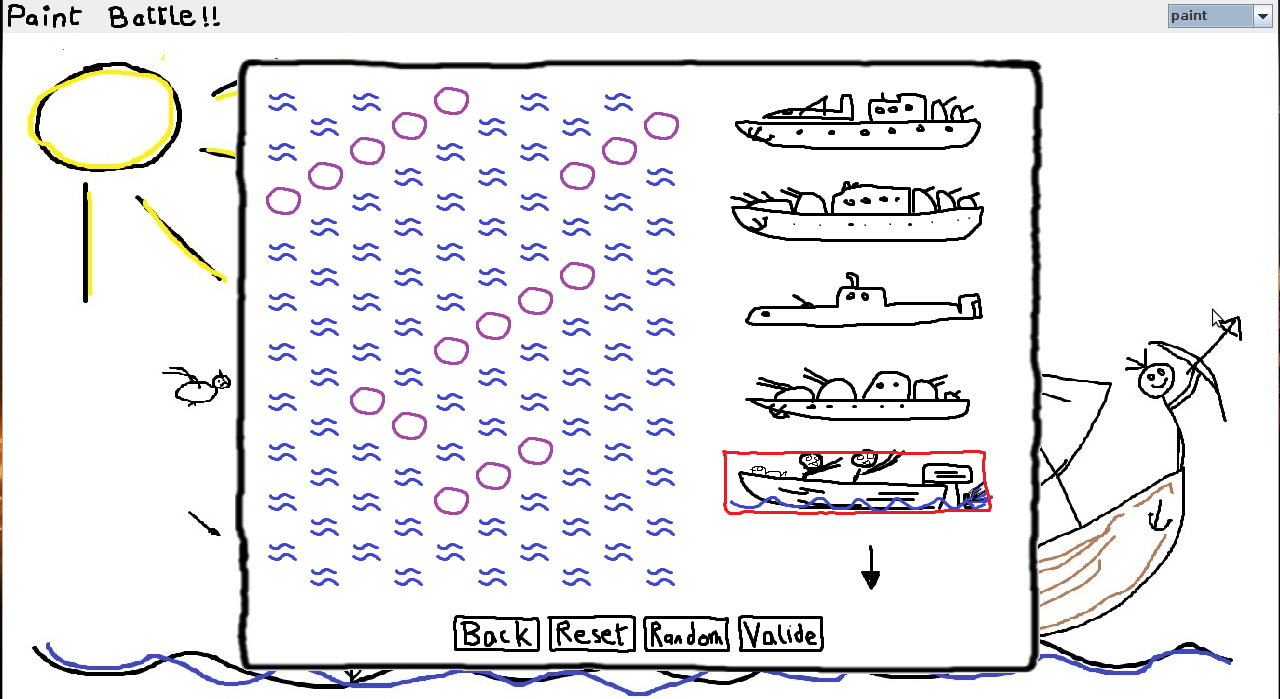 Paint Battle!!
paint
Back Reset Random Valide